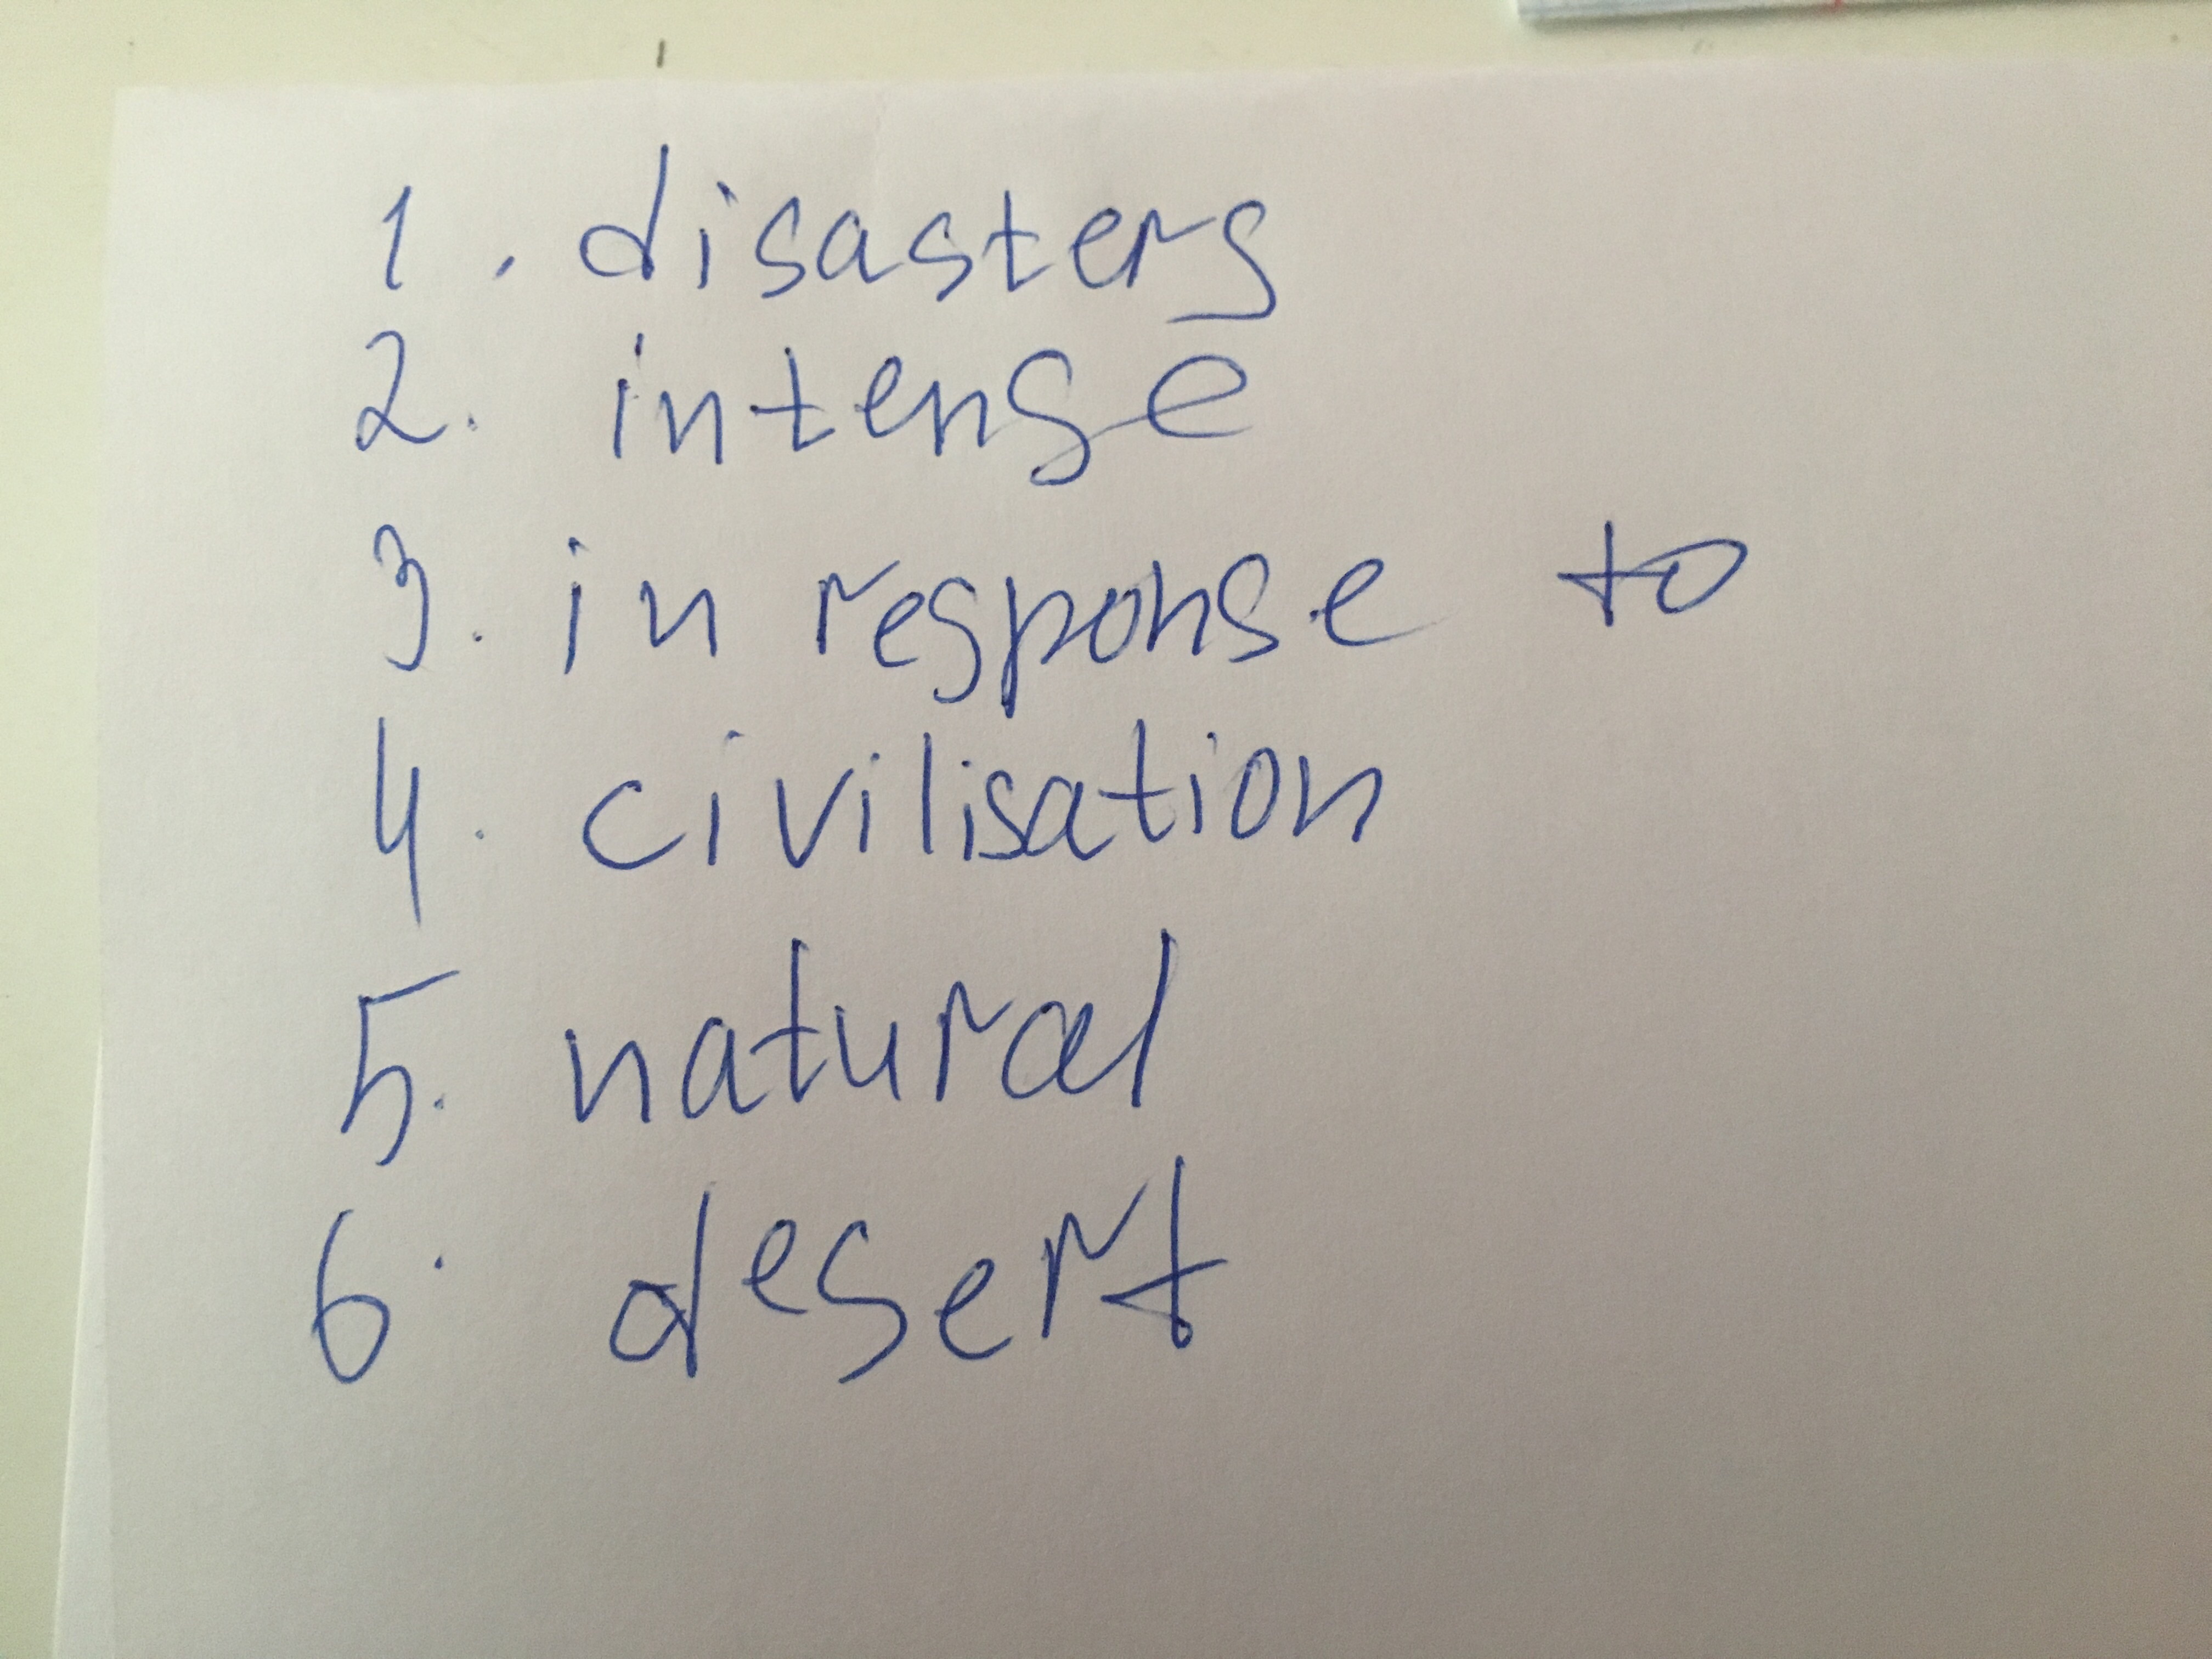 1. disasters
2. intense
3. in response to
4. civilisation
5. natural
6. desert